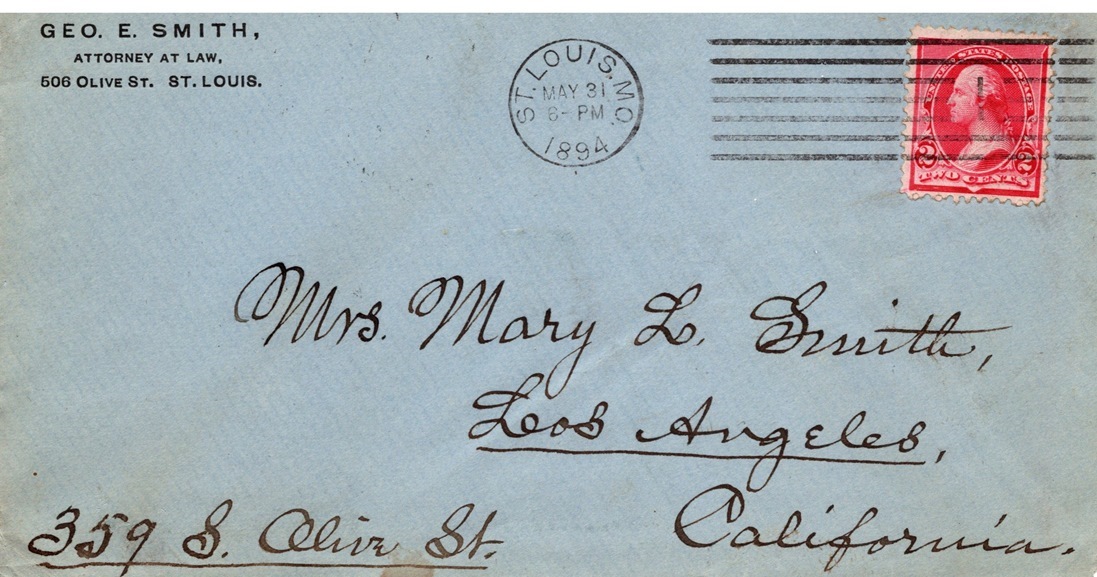 GEO. E. SMITH,
ATTORNEY AT LAW,
506 OLIVE ST. ST. LOUIS.
ST. LOUIS, MO.
MAY 31
6- PM
1894
UNITED STATES POSTAGE
2 2
TWO CENTS
Mrs. Mary L. Smith,
Los Angeles,
California.
359 S. Olive St.